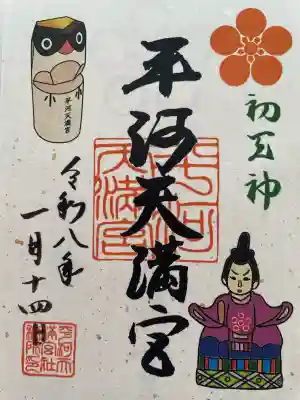 初天神
平河天満宮
平河天満宮
小 小
平河天満宮
令和八年
一月十四日